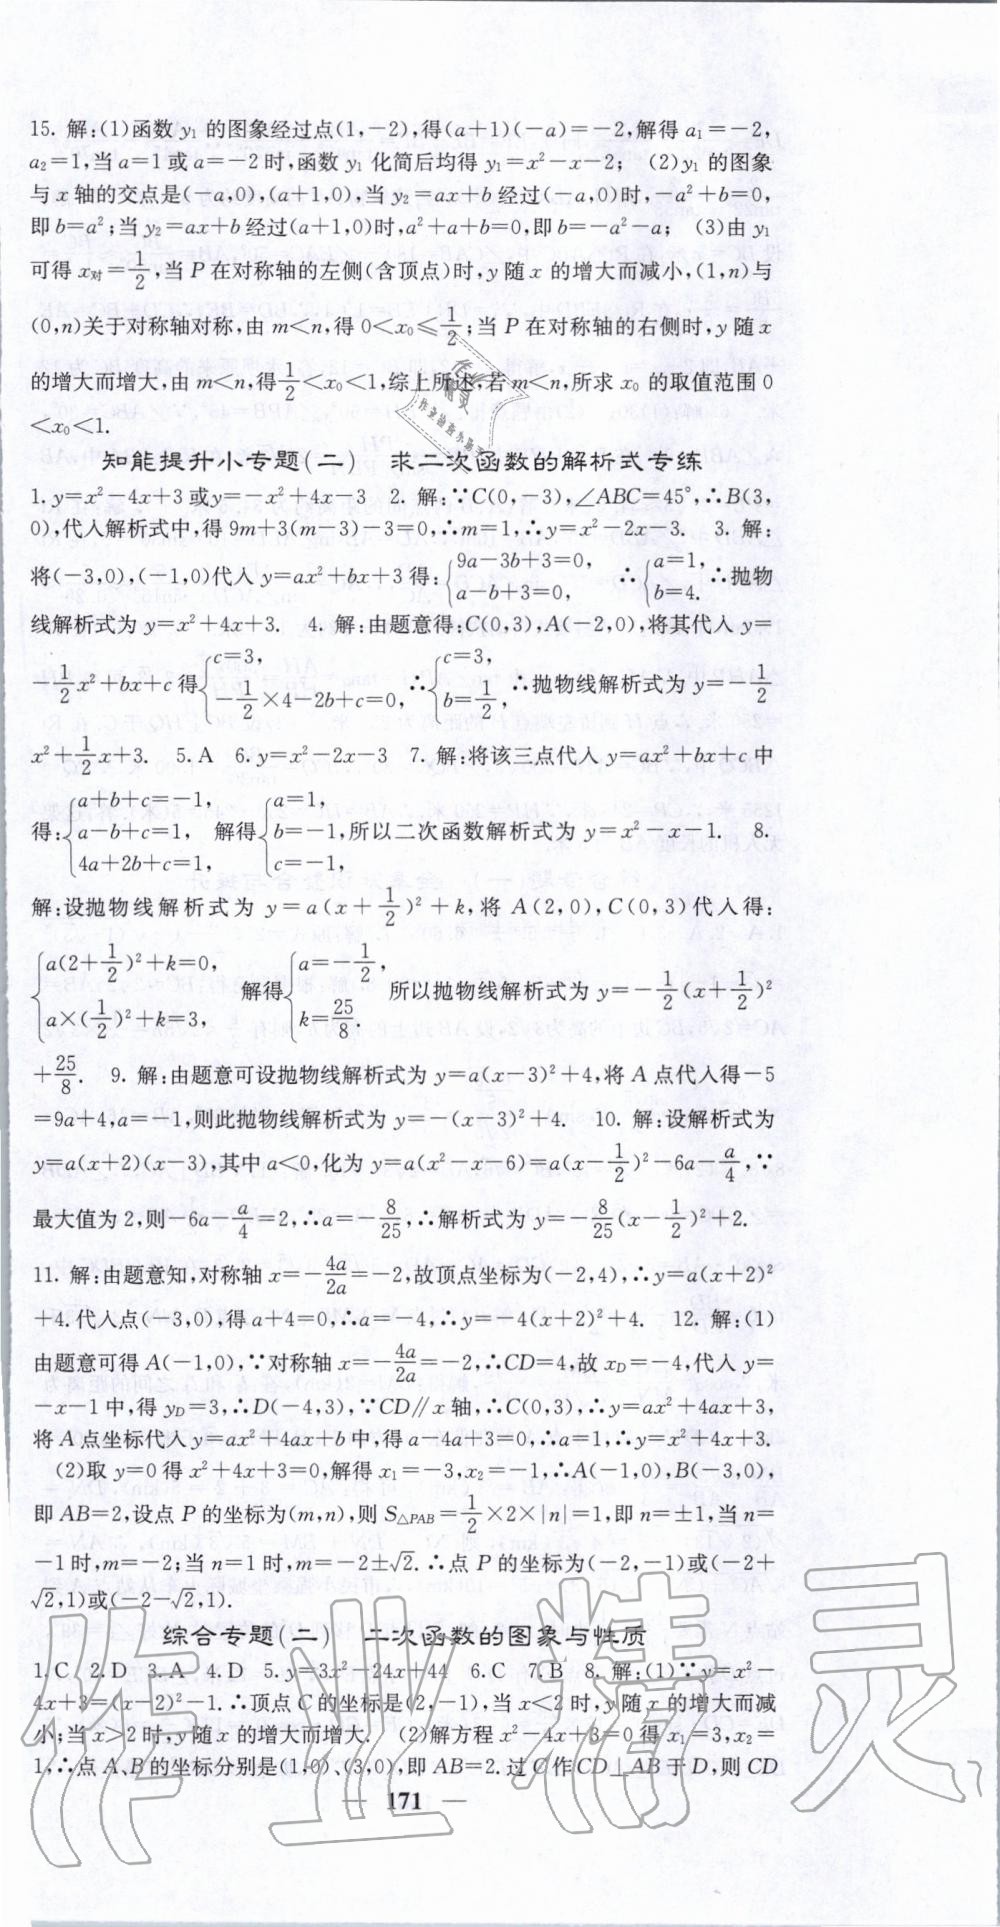 15. 解:(1)函数 y₁ 的图象经过点(1,-2),得(a+1)(-a)=-2,解得 a₁=-2,
a₂=1,当 a=1 或 a=-2 时,函数 y₁ 化简后均得 y₁=x²-x-2; (2)y₁ 的图象
与 x 轴的交点是(-a,0),(a+1,0),当 y₂=ax+b 经过(-a,0)时,-a²+b=0,
即 b=a²;当 y₂=ax+b 经过(a+1,0)时,a²+a+b=0,即 b=-a²-a; (3)由 y₁
可得 x对=1/2,当 P 在对称轴的左侧(含顶点)时,y 随 x 的增大而减小,(1,n)与
(0,n)关于对称轴对称,由 m<n,得 0<x₀≤1/2;当 P 在对称轴的右侧时,y 随 x
的增大而增大,由 m<n,得1/2<x₀<1,综上所述,若 m<n,所求 x₀ 的取值范围 0
<x₀<1.
知能提升小专题(二) 求二次函数的解析式专练
1. y=x²-4x+3 或 y=-x²+4x-3 2. 解:∵C(0,-3),∠ABC=45°,∴B(3,
0),代入解析式中,得 9m+3(m-3)-3=0,∴m=1,∴y=x²-2x-3. 3. 解:
将(-3,0),(-1,0)代入 y=ax²+bx+3 得:{9a-3b+3=0, a-b+3=0, ∴{a=1, b=4. ∴抛物
线解析式为 y=x²+4x+3. 4. 解:由题意得:C(0,3),A(-2,0),将其代入 y=
-1/2x²+bx+c 得{c=3, -1/2×4-2b+c=0, ∴{c=3, b=1/2, ∴抛物线解析式为 y=-1/2
x²+1/2x+3. 5. A 6. y=x²-2x-3 7. 解:将该三点代入 y=ax²+bx+c 中
得:{a+b+c=-1, a-b+c=1, 4a+2b+c=1, 解得{a=1, b=-1, c=-1, 所以二次函数解析式为 y=x²-x-1. 8.
解:设抛物线解析式为 y=a(x+1/2)²+k,将 A(2,0),C(0,3)代入得:
{a(2+1/2)²+k=0, a×(1/2)²+k=3, 解得{a=-1/2, k=25/8. 所以抛物线解析式为 y=-1/2(x+1/2)²
+25/8. 9. 解:由题意可设抛物线解析式为 y=a(x-3)²+4,将 A 点代入得-5
=9a+4,a=-1,则此抛物线解析式为 y=-(x-3)²+4. 10. 解:设解析式为
y=a(x+2)(x-3),其中 a<0,化为 y=a(x²-x-6)=a(x-1/2)²-6a-a/4,∵
最大值为 2,则-6a-a/4=2,∴a=-8/25,∴解析式为 y=-8/25(x-1/2)²+2.
11. 解:由题意知,对称轴 x=-4a/2a=-2,故顶点坐标为(-2,4),∴y=a(x+2)²
+4.代入点(-3,0),得 a+4=0,∴a=-4,∴y=-4(x+2)²+4. 12. 解:(1)
由题意可得 A(-1,0),∵对称轴 x=-4a/2a=-2,∴CD=4,故 x_D=-4,代入 y=
-x-1 中,得 y_D=3,∴D(-4,3),∵CD∥x 轴,∴C(0,3),∴y=ax²+4ax+3,
将 A 点坐标代入 y=ax²+4ax+b 中,得 a-4a+3=0,∴a=1,∴y=x²+4x+3.
(2)取 y=0 得 x²+4x+3=0,解得 x₁=-3,x₂=-1,∴A(-1,0),B(-3,0),
即 AB=2,设点 P 的坐标为(m,n),则 S△PAB=1/2×2×|n|=1,即 n=±1,当 n=
-1 时,m=-2;当 n=1 时,m=-2±√2.∴点 P 的坐标为(-2,-1)或(-2+
√2,1)或(-2-√2,1).
综合专题(二) 二次函数的图象与性质
1. C 2. D 3. A 4. D 5. y=3x²-24x+44 6. C 7. B 8. 解:(1)∵y=x²-
4x+3=(x-2)²-1.∴顶点 C 的坐标是(2,-1),当 x<2 时,y 随 x 的增大而减
小;当 x>2 时,y 随 x 的增大而增大. (2)解方程 x²-4x+3=0 得 x₁=3,x₂=
1,∴点 A、B 的坐标分别是(1,0)、(3,0),即 AB=2.过 C 作 CD⊥AB 于 D,则 CD
— 171 —
作业精灵